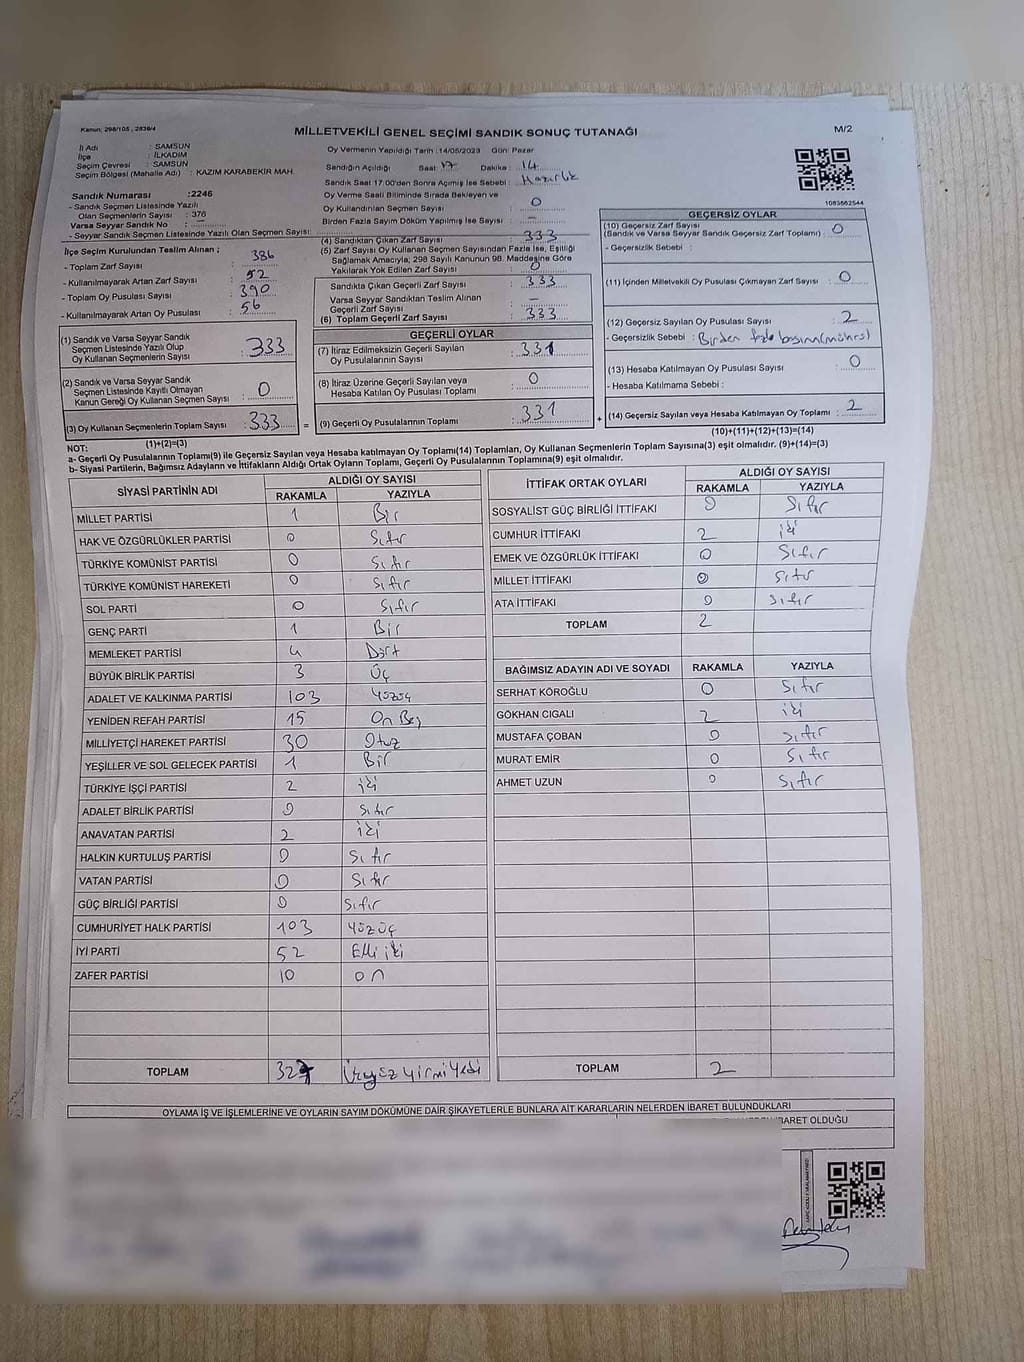 Kanun: 298/105 , 2839/4
MİLLETVEKİLİ GENEL SEÇİMİ SANDIK SONUÇ TUTANAĞI
M/2
İl Adı : SAMSUN
İlçe : İLKADIM
Seçim Çevresi : SAMSUN
Seçim Bölgesi (Mahalle Adı) : KAZIM KARABEKİR MAH.
Sandık Numarası :2246
- Sandık Seçmen Listesinde Yazılı
Olan Seçmenlerin Sayısı : 376
Varsa Seyyar Sandık No : —
- Seyyar Sandık Seçmen Listesinde Yazılı Olan Seçmen Sayısı:
İlçe Seçim Kurulundan Teslim Alınan ;
- Toplam Zarf Sayısı : 386
- Kullanılmayarak Artan Zarf Sayısı : 52
- Toplam Oy Pusulası Sayısı : 390
- Kullanılmayarak Artan Oy Pusulası : 56
(1) Sandık ve Varsa Seyyar Sandık
Seçmen Listesinde Yazılı Olup
Oy Kullanan Seçmenlerin Sayısı : 333
(2) Sandık ve Varsa Seyyar Sandık
Seçmen Listesinde Kayıtlı Olmayan
Kanun Gereği Oy Kullanan Seçmen Sayısı : 0
(3) Oy Kullanan Seçmenlerin Toplam Sayısı : 333
(1)+(2)=(3)
Oy Vermenin Yapıldığı Tarih :14/05/2023 Gün: Pazar
Sandığın Açıldığı Saat: 17 Dakika : 14
Sandık Saat 17:00'den Sonra Açılmış İse Sebebi : Hazırlık
Oy Verme Saati Bitiminde Sırada Bekleyen ve
Oy Kullandırılan Seçmen Sayısı : 0
Birden Fazla Sayım Döküm Yapılmış İse Sayısı : —
(4) Sandıktan Çıkan Zarf Sayısı : 333
(5) Zarf Sayısı Oy Kullanan Seçmen Sayısından Fazla İse, Eşitliği
Sağlamak Amacıyla; 298 Sayılı Kanunun 98. Maddesine Göre
Yakılarak Yok Edilen Zarf Sayısı : 0
Sandıkta Çıkan Geçerli Zarf Sayısı : 333
Varsa Seyyar Sandıktan Teslim Alınan
Geçerli Zarf Sayısı : —
(6) Toplam Geçerli Zarf Sayısı : 333
GEÇERLİ OYLAR
(7) İtiraz Edilmeksizin Geçerli Sayılan
Oy Pusulalarının Sayısı : 331
(8) İtiraz Üzerine Geçerli Sayılan veya
Hesaba Katılan Oy Pusulası Toplamı : 0
= (9) Geçerli Oy Pusulalarının Toplamı : 331
1083662544
GEÇERSİZ OYLAR
(10) Geçersiz Zarf Sayısı
(Sandık ve Varsa Seyyar Sandık Geçersiz Zarf Toplamı) : 0
- Geçersizlik Sebebi :
(11) İçinden Milletvekili Oy Pusulası Çıkmayan Zarf Sayısı : 0
(12) Geçersiz Sayılan Oy Pusulası Sayısı : 2
- Geçersizlik Sebebi : Birden fazla basım(mühür)
(13) Hesaba Katılmayan Oy Pusulası Sayısı : 0
- Hesaba Katılmama Sebebi :
+ (14) Geçersiz Sayılan veya Hesaba Katılmayan Oy Toplamı : 2
(10)+(11)+(12)+(13)=(14)
NOT:
a- Geçerli Oy Pusulalarının Toplamı(9) ile Geçersiz Sayılan veya Hesaba katılmayan Oy Toplamı(14) Toplamları, Oy Kullanan Seçmenlerin Toplam Sayısına(3) eşit olmalıdır. (9)+(14)=(3)
b- Siyasi Partilerin, Bağımsız Adayların ve İttifakların Aldığı Ortak Oyların Toplamı, Geçerli Oy Pusulalarının Toplamına(9) eşit olmalıdır.
SİYASİ PARTİNİN ADI ALDIĞI OY SAYISI
RAKAMLA YAZIYLA
MİLLET PARTİSİ 1 Bir
HAK VE ÖZGÜRLÜKLER PARTİSİ 0 Sıfır
TÜRKİYE KOMÜNİST PARTİSİ 0 Sıfır
TÜRKİYE KOMÜNİST HAREKETİ 0 Sıfır
SOL PARTİ 0 Sıfır
GENÇ PARTİ 1 Bir
MEMLEKET PARTİSİ 4 Dört
BÜYÜK BİRLİK PARTİSİ 3 Üç
ADALET VE KALKINMA PARTİSİ 103 Yüzüç
YENİDEN REFAH PARTİSİ 15 On Beş
MİLLİYETÇİ HAREKET PARTİSİ 30 Otuz
YEŞİLLER VE SOL GELECEK PARTİSİ 1 Bir
TÜRKİYE İŞÇİ PARTİSİ 2 iki
ADALET BİRLİK PARTİSİ 0 Sıfır
ANAVATAN PARTİSİ 2 iki
HALKIN KURTULUŞ PARTİSİ 0 Sıfır
VATAN PARTİSİ 0 Sıfır
GÜÇ BİRLİĞİ PARTİSİ 0 Sıfır
CUMHURİYET HALK PARTİSİ 103 Yüzüç
İYİ PARTİ 52 Elli iki
ZAFER PARTİSİ 10 on
TOPLAM 327 Üçyüz yirmi Yedi
İTTİFAK ORTAK OYLARI ALDIĞI OY SAYISI
RAKAMLA YAZIYLA
SOSYALİST GÜÇ BİRLİĞİ İTTİFAKI 0 Sıfır
CUMHUR İTTİFAKI 2 iki
EMEK VE ÖZGÜRLÜK İTTİFAKI 0 Sıfır
MİLLET İTTİFAKI 0 Sıfır
ATA İTTİFAKI 0 Sıfır
TOPLAM 2
BAĞIMSIZ ADAYIN ADI VE SOYADI RAKAMLA YAZIYLA
SERHAT KÖROĞLU 0 Sıfır
GÖKHAN CIGALI 2 iki
MUSTAFA ÇOBAN 0 Sıfır
MURAT EMİR 0 Sıfır
AHMET UZUN 0 Sıfır
TOPLAM 2
OYLAMA İŞ VE İŞLEMLERİNE VE OYLARIN SAYIM DÖKÜMÜNE DAİR ŞİKAYETLERLE BUNLARA AİT KARARLARIN NELERDEN İBARET BULUNDUKLARI
İBARET OLDUĞU